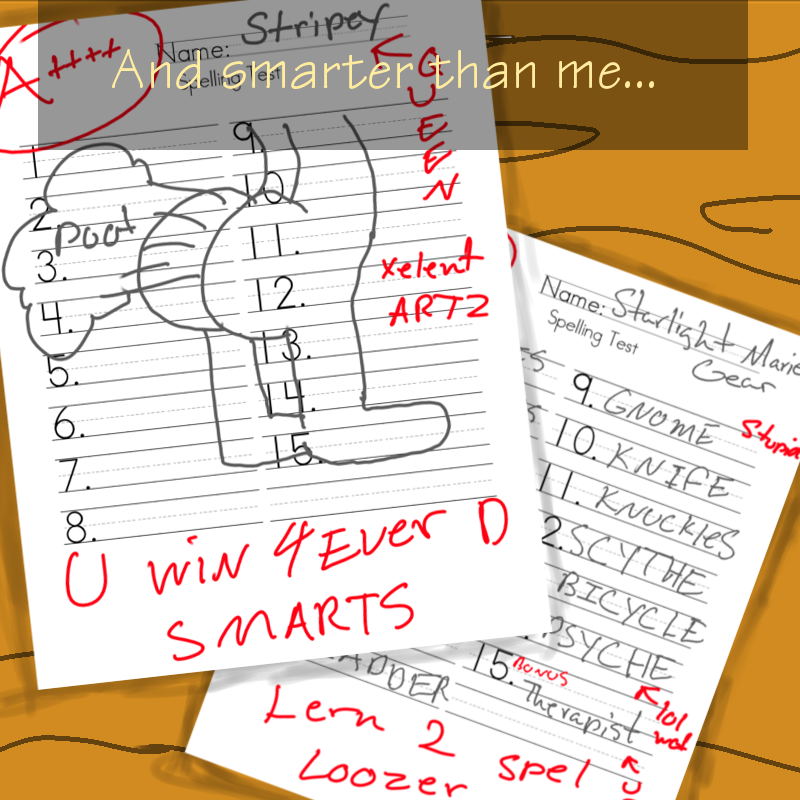 And smarter than me...
A++++
Name: Stripey
Spelling Test
QUEEN
1
2
3.
4.
5.
6.
7.
8.
poot
9.
10
11.
12.
13.
14.
15.
xelent
ARTZ
U WIN 4EVER D
SMARTS
Name: Starlight Marie
Gear
Spelling Test
9. GNOME
10. KNIFE
11. KNUCKLES
2. SCYTHE
BICYCLE
PSYCHE
15. BONUS
Therapist
lol
wat
U
ADDER
Lern 2 spel
Loozer